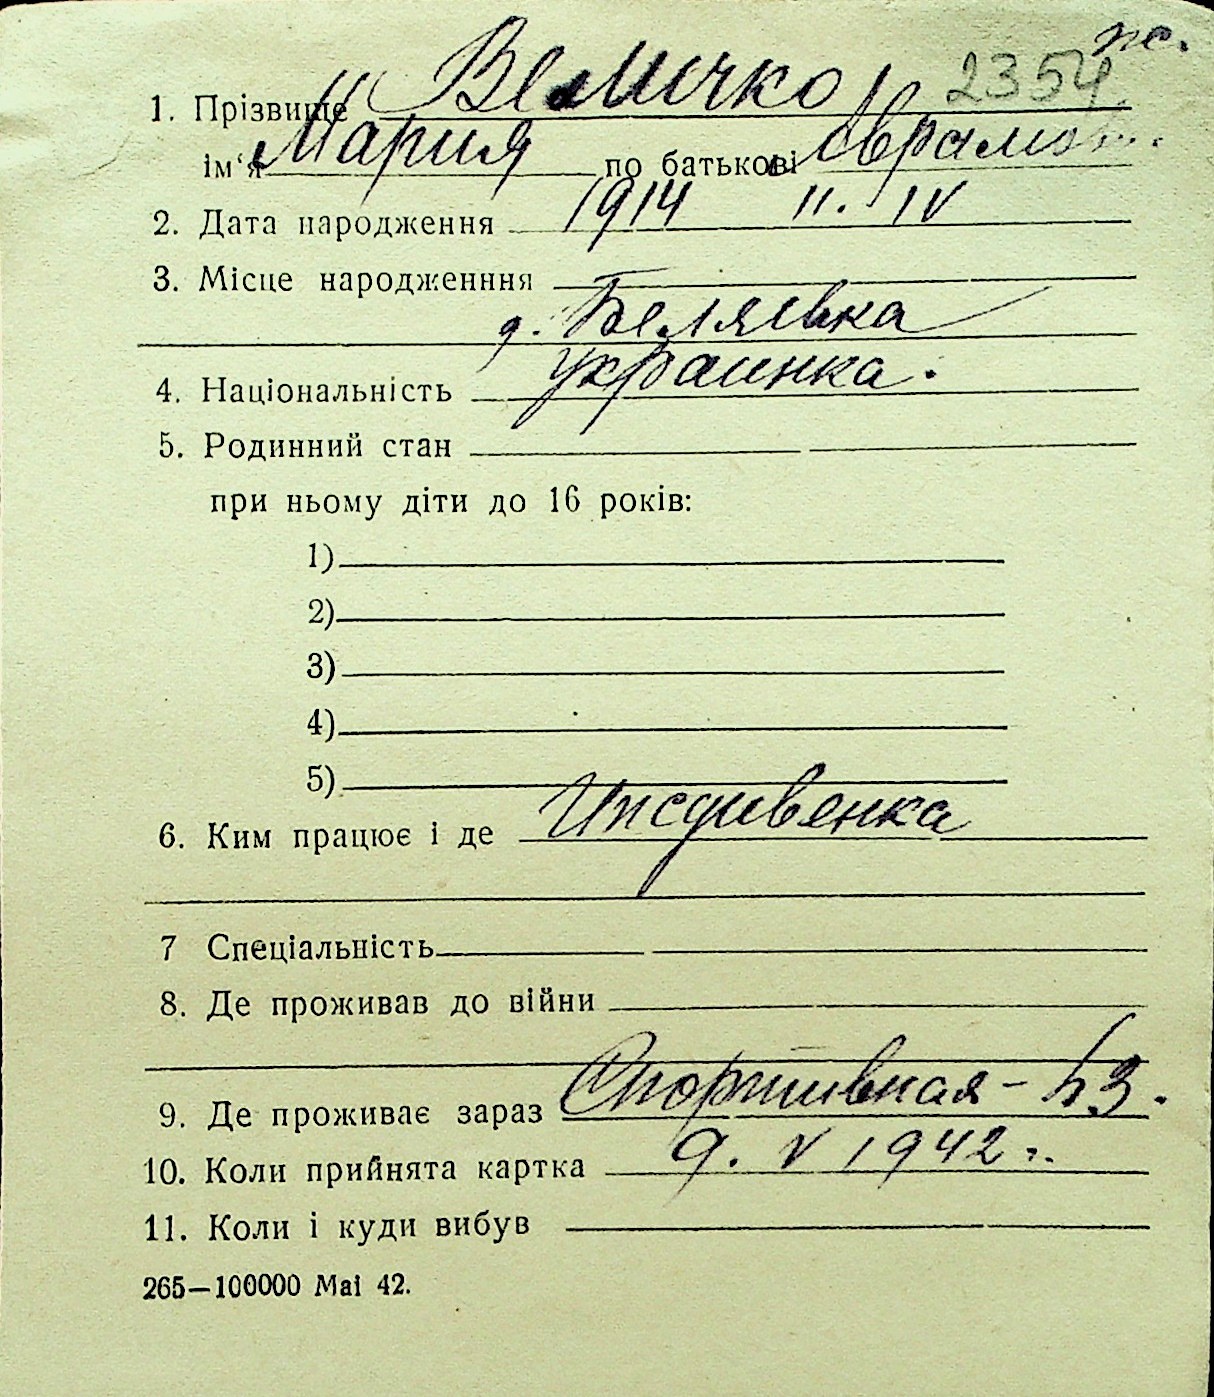 ж.
2354
1. Прізвище Величко
ім‘я Мария по батькові Аврамов...
2. Дата народження 1914 11. IV
3. Місце народженння
д. Беляевка
4. Національність украинка.
5. Родинний стан
при ньому діти до 16 років:
1)
2)
3)
4)
5)
6. Ким працює і де Иждивенка
7 Спеціальність
8. Де проживав до війни
9. Де проживає зараз Спортивная – 53.
10. Коли прийнята картка 9. V 1942 г.
11. Коли і куди вибув
265—100000 Mai 42.